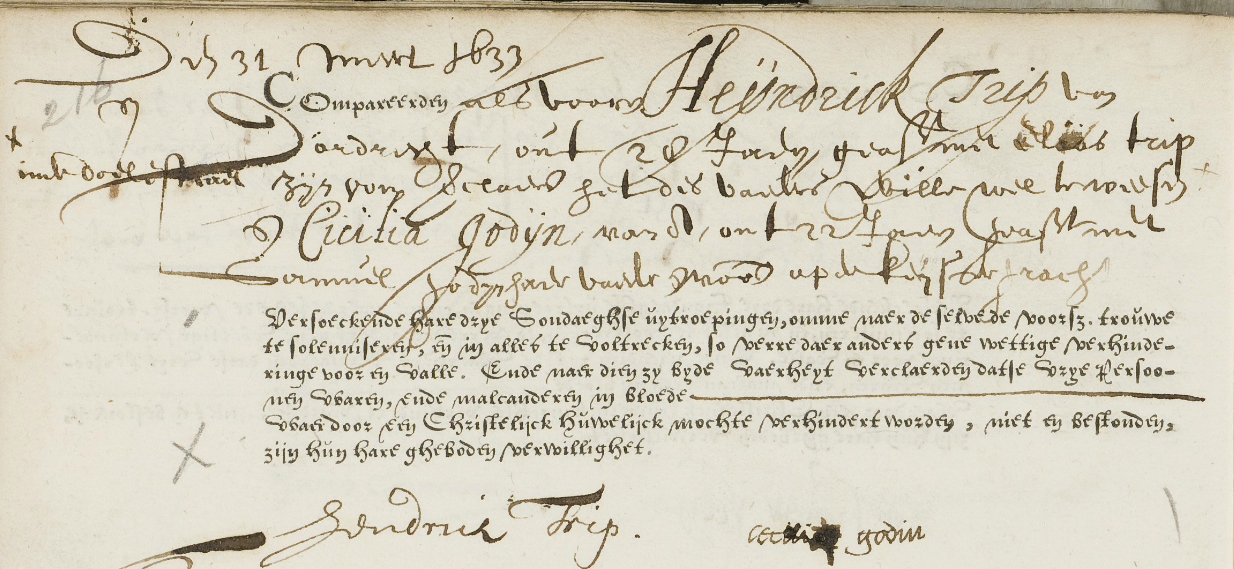 Den 31 Meert 1633
216
Compareerden als vooren Heÿndrick Trip van
Dordrecht, out 28 Jaren, geasst met Elias trip
in de doelestraet zijn oom verclaert het des vaders wille wel te wesen
en Cicilia godijn, van A, out 22 Jaren geasst met
Samuel godijn hare vader woont op de keijsersgracht
Versoeckende hare drye Sondaeghse uytroepingen, omme naer de selve de voorsz. trouwe
te solemniseren, en in alles te voltrecken, so verre daer anders gene wettige verhinde-
ringe voor en valle. Ende naer dien zy byde waerheyt verclaerden datse vrye Persoo-
nen waren, ende malcanderen in bloede
waer door een Christelijck Huwelijck mochte verhindert worden, niet en bestonden,
zijn hun hare gheboden verwillighet.
Hendrick Trip. godin